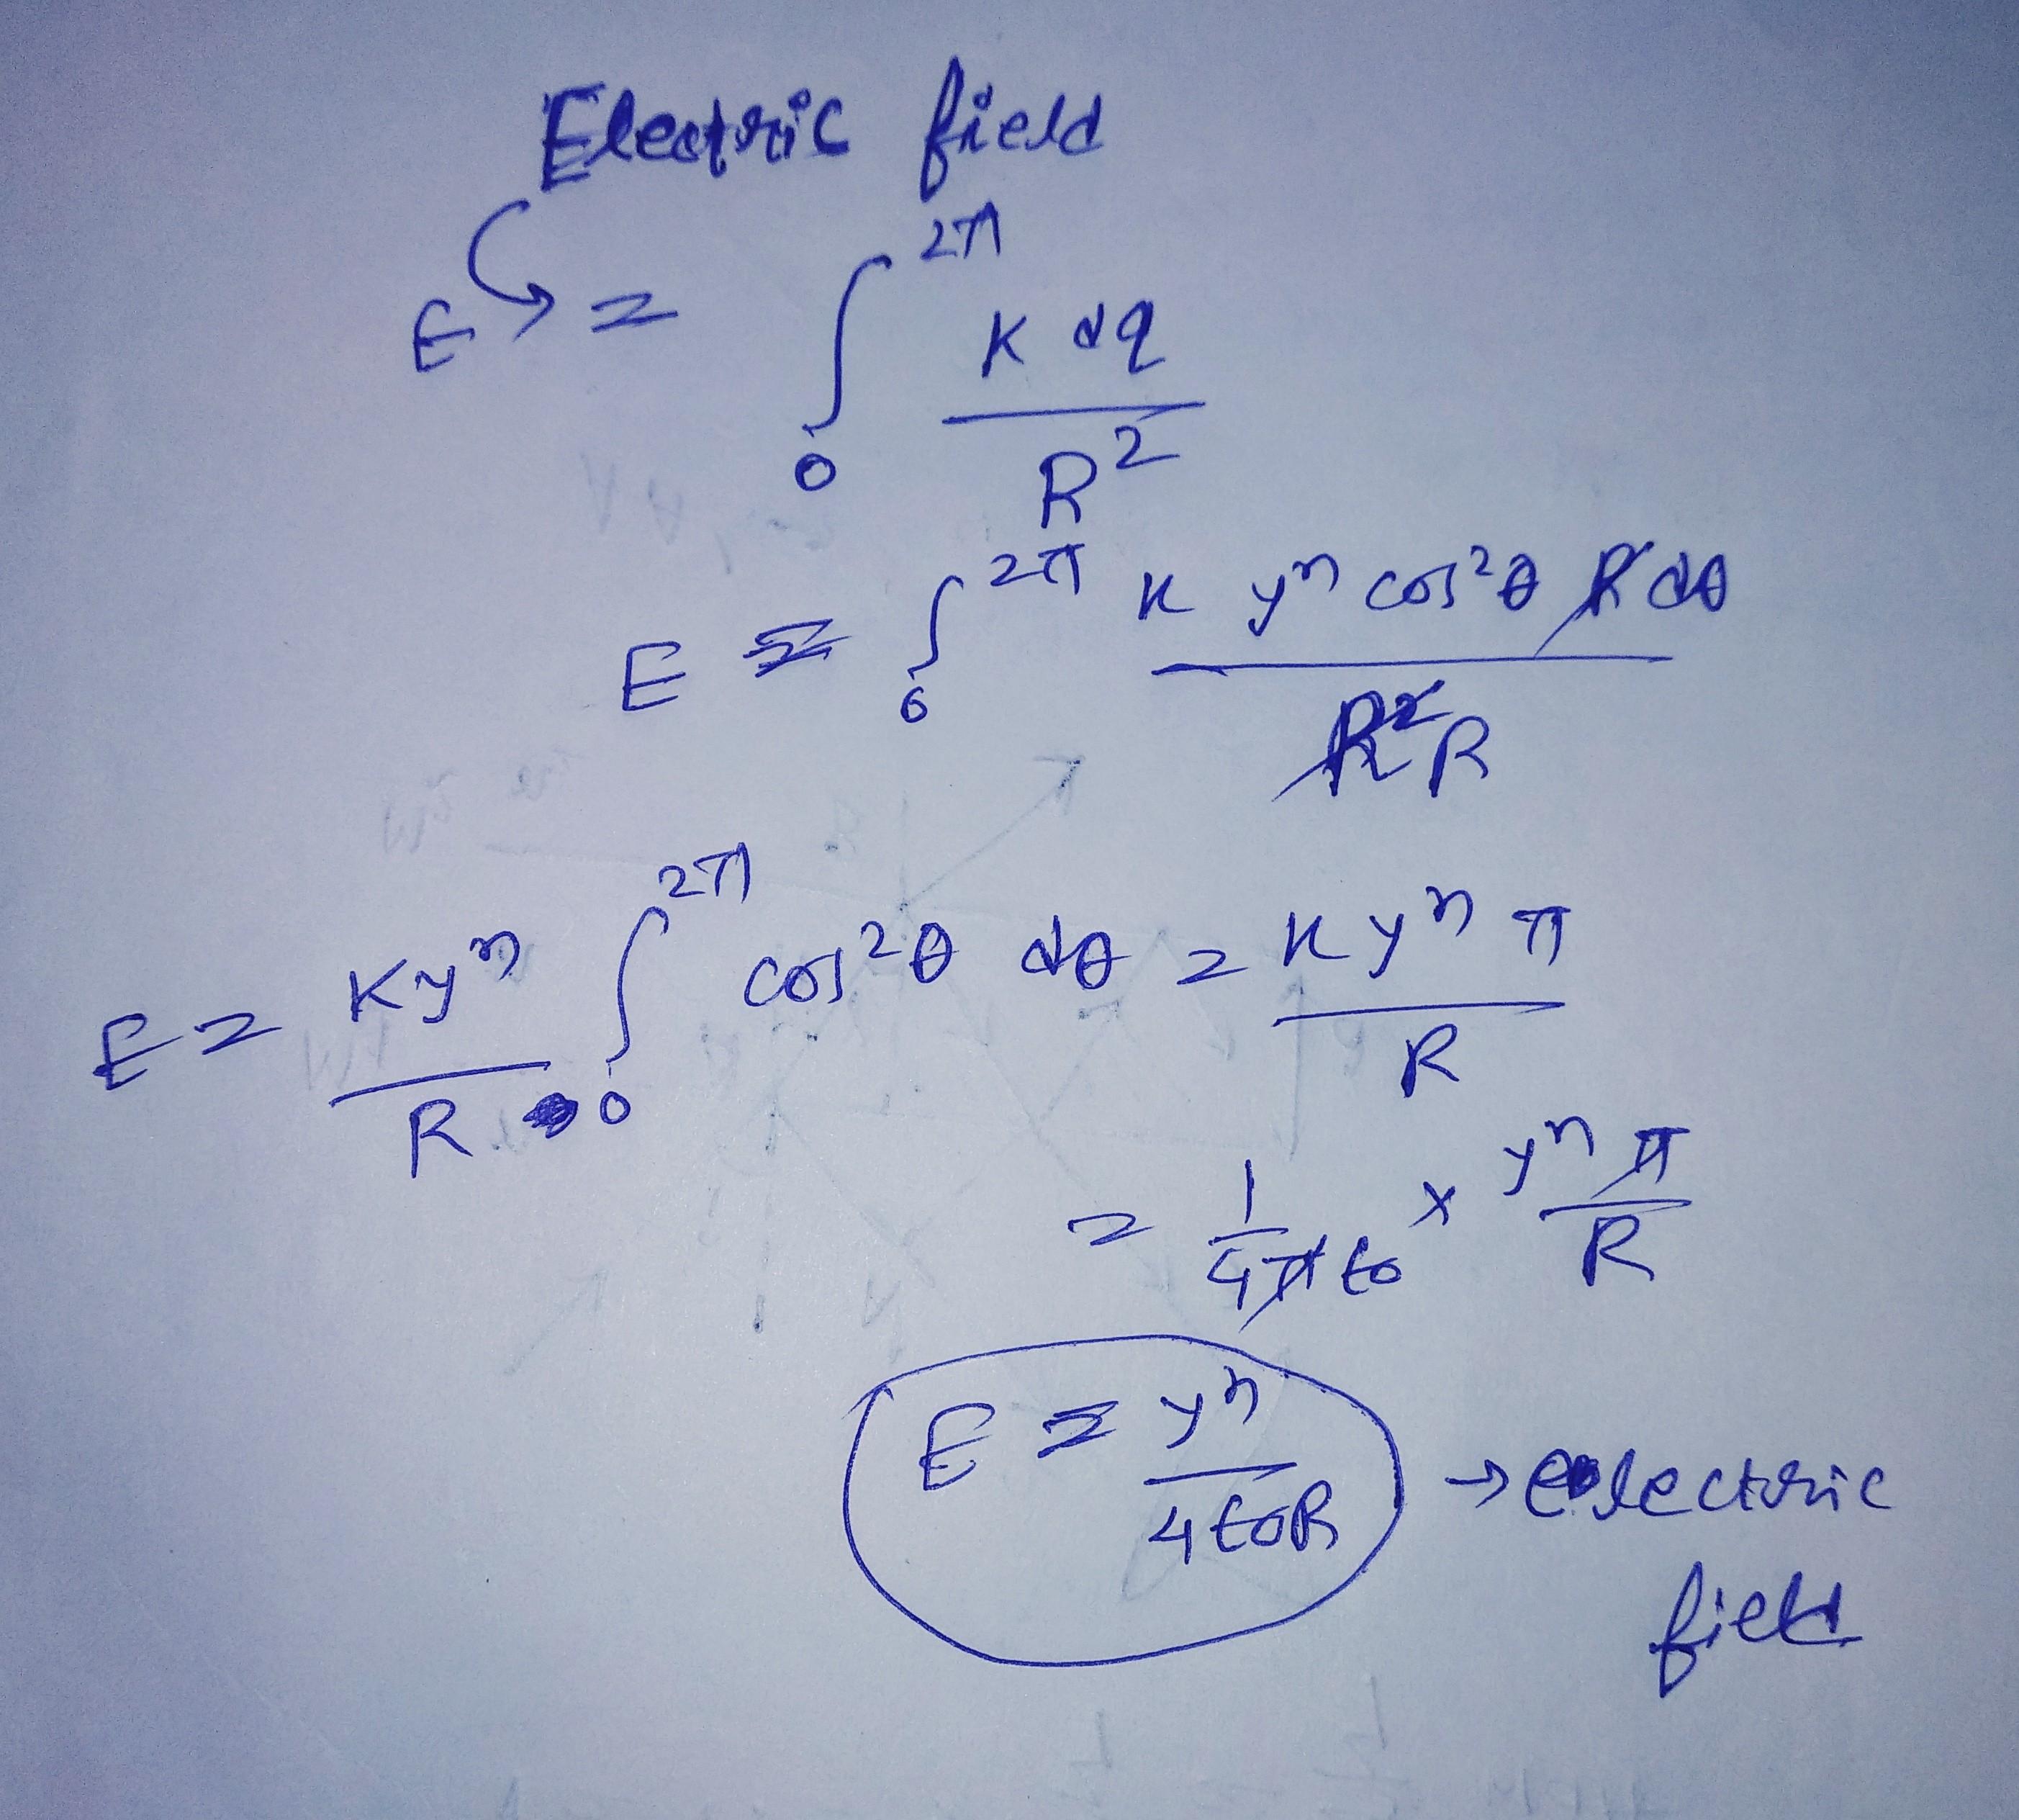 Electric field
E = ∫₀^2π K dq / R²
E = ∫₀^2π K yⁿ cos²θ R dθ / R² R
E = Kyⁿ / R ∫₀^2π cos²θ dθ = K yⁿ π / R
= 1 / 4π ε₀ × yⁿ π / R
E = yⁿ / 4 ε₀ R → electric
field